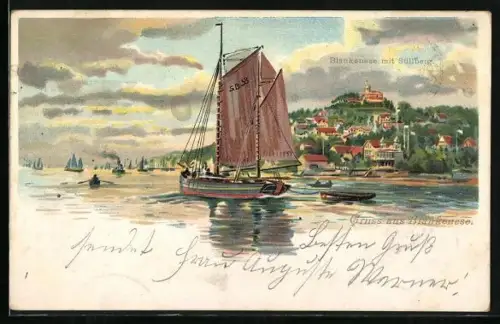 Blankenese mit Süllberg
S.B.53
Gruss aus Blankenese.
sendet Besten Gruß
Frau Auguste Werner!